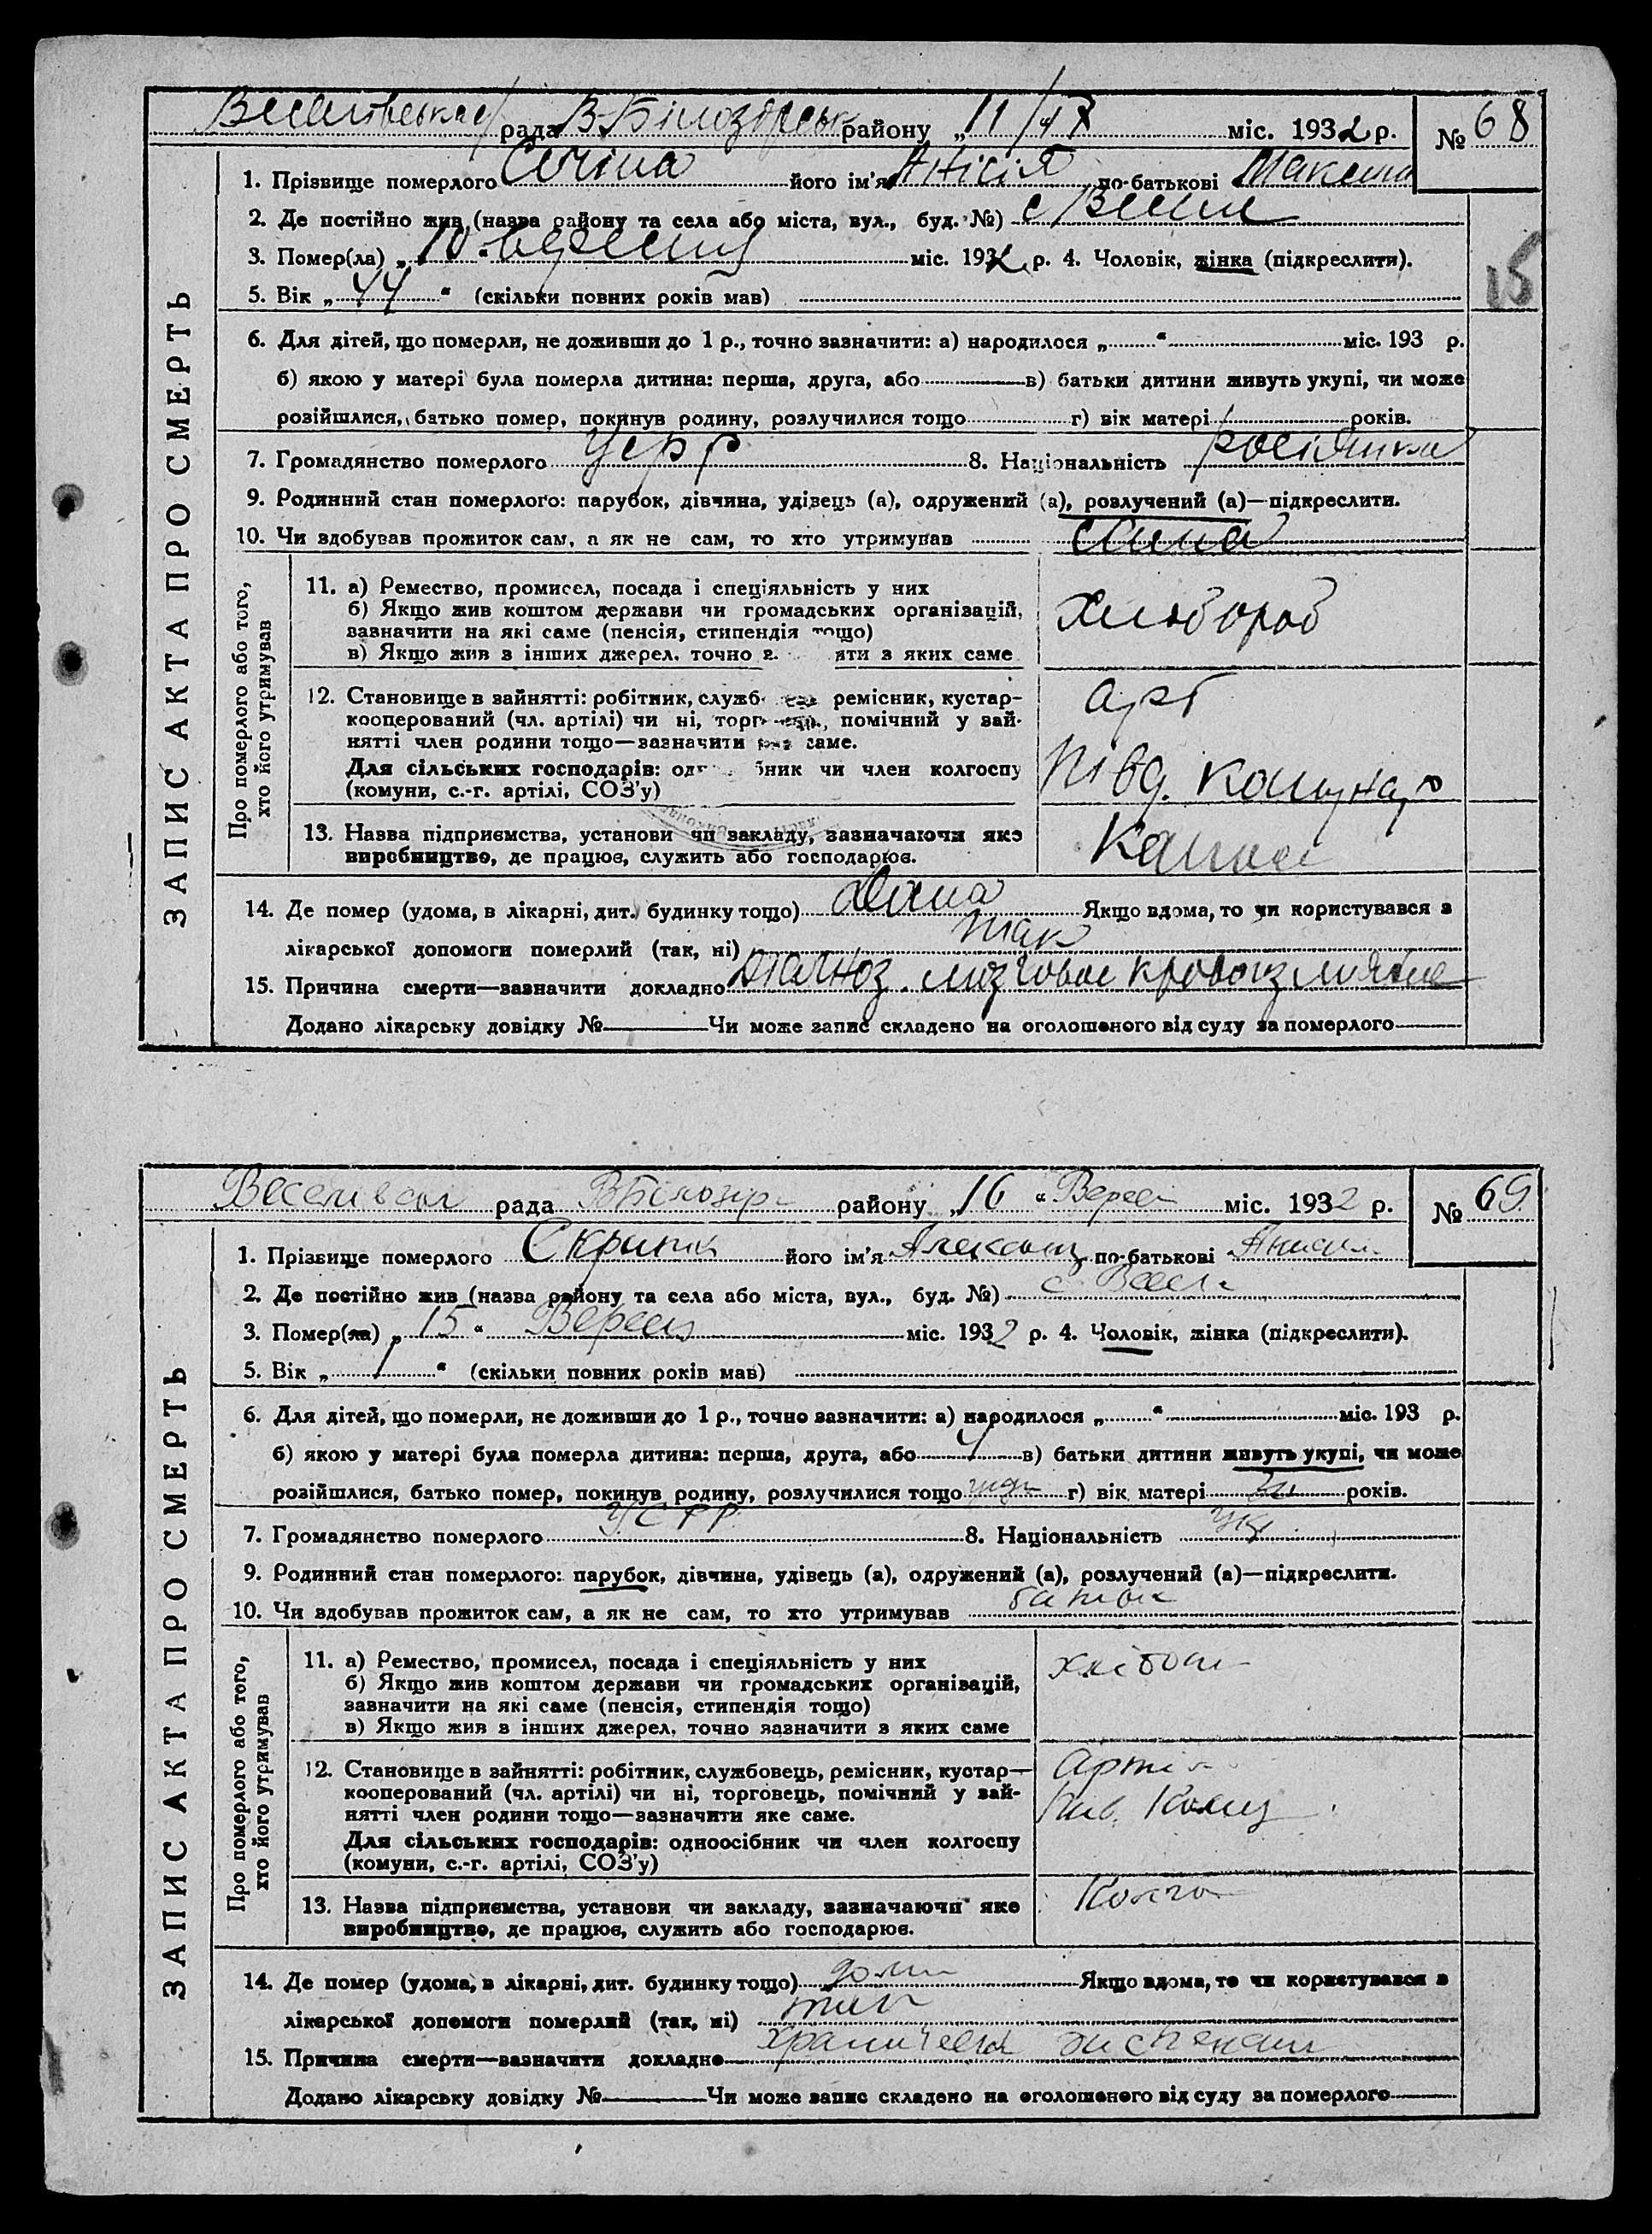 рада В-Білозірськ району „11/ІХ міс. 1932 р. № 68
1. Прізвище померлого його ім'я Анісія по-батькові Максим
2. Де постійно жив (назва району та села або міста, вул., буд. №) с
3. Помер(ла) „10“ вересня міс. 1932 р. 4. Чоловік, жінка (підкреслити).
5. Вік „44“ (скільки повних років мав)
6. Для дітей, що померли, не доживши до 1 р., точно зазначити: а) народилося „ “ міс. 193 р.
б) якою у матері була померла дитина: перша, друга, або в) батьки дитини живуть укупі, чи може
розійшлися, батько помер, покинув родину, розлучилися тощо г) вік матері років.
7. Громадянство померлого УСРР 8. Національність
9. Родинний стан померлого: парубок, дівчина, удівець (а), одружений (а), розлучений (а)—підкреслити.
10. Чи здобував прожиток сам, а як не сам, то хто утримував сама
15
ЗАПИС АКТА ПРО СМЕРТЬ
Про померлого або того,
хто його утримував
11. а) Ремество, промисел, посада і спеціяльність у них
б) Якщо жив коштом держави чи громадських організацій,
зазначити на які саме (пенсія, стипендія тощо)
в) Якщо жив з інших джерел, точно з яти з яких саме
Хлібороб
12. Становище в зайнятті: робітник, служб ремісник, кустар-
кооперований (чл. артілі) чи ні, торг помічний у зай-
нятті член родини тощо—зазначити яке саме.
Для сільських господарів: од бник чи член колгоспу
(комуни, с.-г. артілі, СОЗ'у)
арт
Комунар
13. Назва підприємства, установи чи закладу, зазначаючи яке
виробництво, де працює, служить або господарює.
14. Де помер (удома, в лікарні, дит. будинку тощо) дома Якщо вдома, то чи користувався з
лікарської допомоги померлий (так, ні) так
15. Причина смерти—зазначити докладно диагноз. мозговое кровоизлияние
Додано лікарську довідку № Чи може запис складено на оголошеного від суду за померлого
рада ВБілозір району „16“ Верес міс. 1932 р. № 69
1. Прізвище померлого Скрипк його ім'я Александ по-батькові
2. Де постійно жив (назва району та села або міста, вул., буд. №) с Весел
3. Помер(ла) „15“ Верес міс. 1932 р. 4. Чоловік, жінка (підкреслити).
5. Вік „1“ (скільки повних років мав)
6. Для дітей, що померли, не доживши до 1 р., точно зазначити: а) народилося „ “ міс. 193 р.
б) якою у матері була померла дитина: перша, друга, або 4 в) батьки дитини живуть укупі, чи може
розійшлися, батько помер, покинув родину, розлучилися тощо г) вік матері років.
7. Громадянство померлого УСРР 8. Національність Укр
9. Родинний стан померлого: парубок, дівчина, удівець (а), одружений (а), розлучений (а)—підкреслити.
10. Чи здобував прожиток сам, а як не сам, то хто утримував батьк
ЗАПИС АКТА ПРО СМЕРТЬ
Про померлого або того,
хто його утримував
11. а) Ремество, промисел, посада і спеціяльність у них
б) Якщо жив коштом держави чи громадських організацій,
зазначити на які саме (пенсія, стипендія тощо)
в) Якщо жив з інших джерел, точно зазначити з яких саме
12. Становище в зайнятті: робітник, службовець, ремісник, кустар—
кооперований (чл. артілі) чи ні, торговець, помічний у зай-
нятті член родини тощо—зазначити яке саме.
Для сільських господарів: одноосібник чи член колгоспу
(комуни, с.-г. артілі, СОЗ'у)
Артіл
13. Назва підприємства, установи чи закладу, зазначаючи яке
виробництво, де працює, служить або господарює.
14. Де помер (удома, в лікарні, дит. будинку тощо) дома Якщо вдома, то чи користувався з
лікарської допомоги померлий (так, ні) так
15. Причина смерти—зазначити докладно
Додано лікарську довідку № Чи може запис складено на оголошеного від суду за померлого